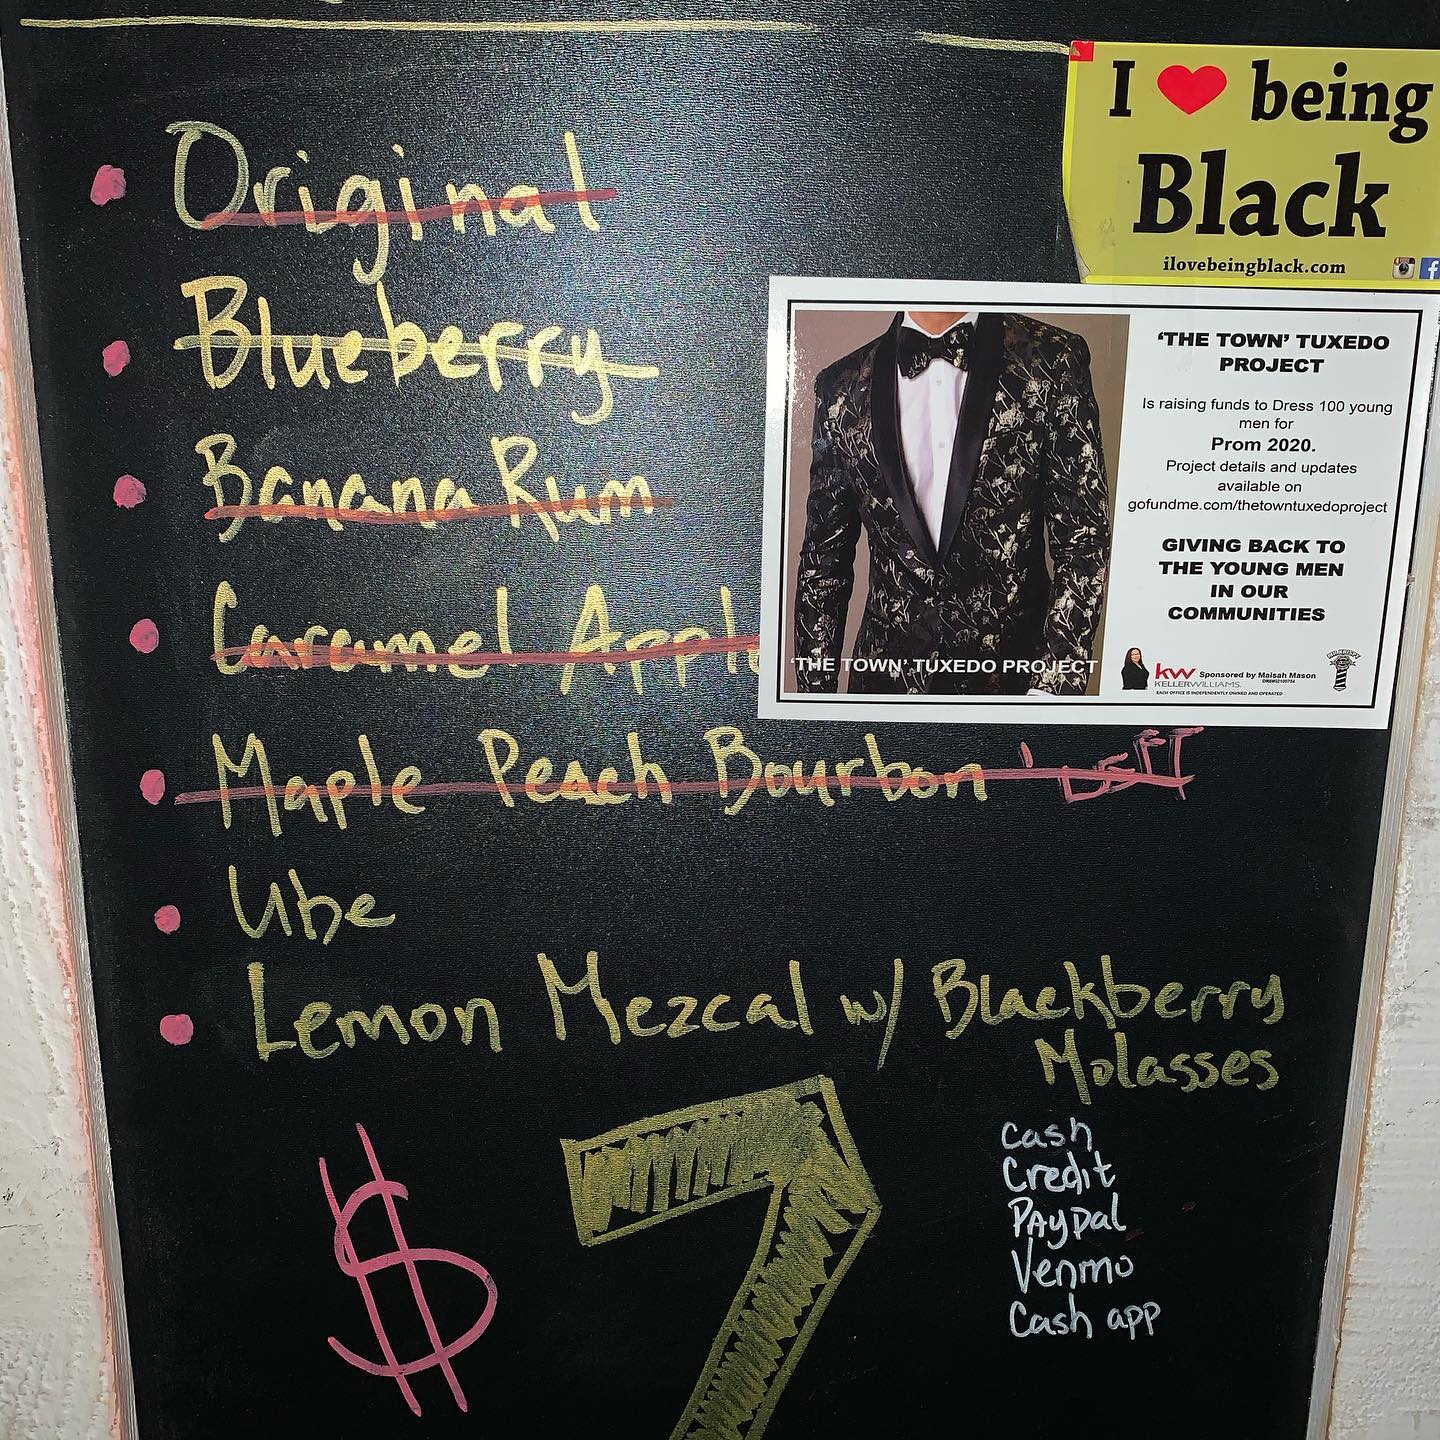 Original
Blueberry
Banana Rum
Caramel Apple
Maple Peach Bourbon
Ube
Lemon Mezcal w/ Blackberry
Molasses
$7
Cash
Credit
PAypal
Venmo
Cash app
I ❤ being
Black
ilovebeingblack.com
'THE TOWN' TUXEDO
PROJECT
Is raising funds to Dress 100 young
men for
Prom 2020.
Project details and updates
available on
gofundme.com/thetowntuxedoproject
GIVING BACK TO
THE YOUNG MEN
IN OUR
COMMUNITIES
'THE TOWN' TUXEDO PROJECT
kw
KELLERWILLIAMS.
Sponsored by Maisah Mason
DRE#02100754
EACH OFFICE IS INDEPENDENTLY OWNED AND OPERATED